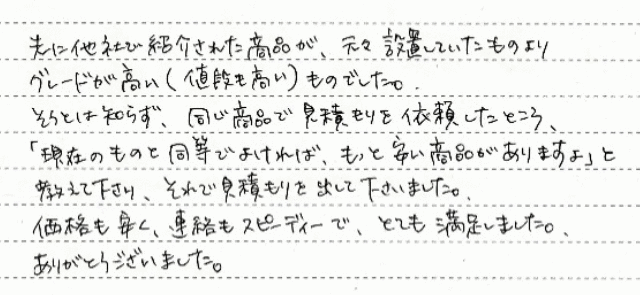 先に他社で紹介された商品が、元々設置していたものより
グレードが高い(値段も高い)ものでした。
そうとは知らず、同じ商品で見積もりを依頼したところ、
「現在のものと同等でよければ、もっと安い商品がありますよ」と
教えて下さり、それで見積もりを出して下さいました。
価格も安く、連絡もスピーディーで、とても満足しました。
ありがとうございました。